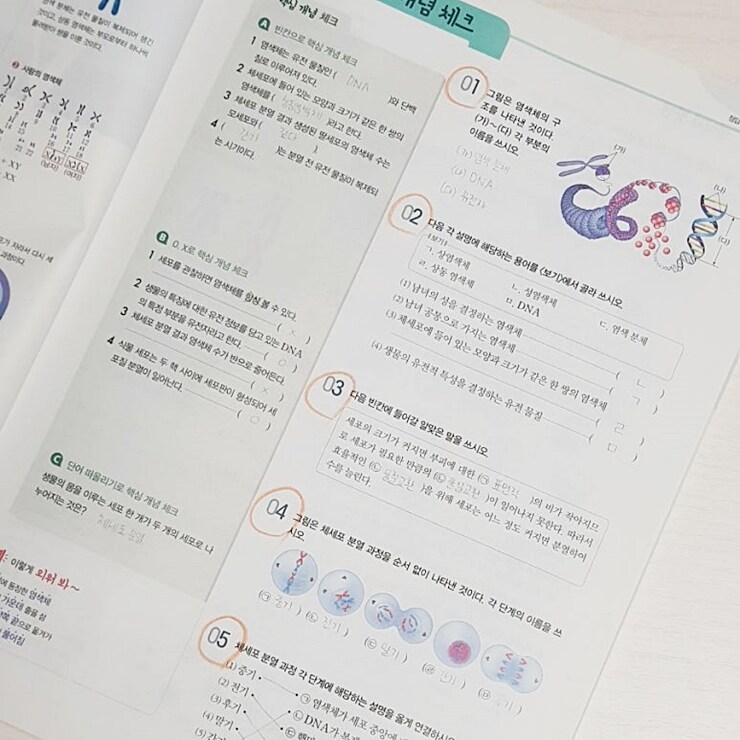 핵심 개념 체크
개념 체크
A 빈칸으로 핵심 개념 체크
1 염색체는 유전 물질인 ( DNA )와 단백
질로 이루어져 있다.
2 체세포에 들어 있는 모양과 크기가 같은 한 쌍의
염색체를 ( 상동염색체 )라고 한다.
3 체세포 분열 결과 생성된 딸세포의 염색체 수는
모세포와 ( 같다 )
4 ( 간기 )는 분열 전 유전 물질이 복제되
는 시기이다.
B O, X로 핵심 개념 체크
1 세포를 관찰하면 염색체를 항상 볼 수 있다.
( × )
2 생물의 특징에 대한 유전 정보를 담고 있는 DNA
의 특정 부분을 유전자라고 한다. ( O )
3 체세포 분열 결과 염색체 수가 반으로 줄어든다.
( × )
4 식물 세포는 두 핵 사이에 세포판이 형성되어 세
포질 분열이 일어난다. ( O )
C 단어 떠올리기로 핵심 개념 체크
생물의 몸을 이루는 세포 한 개가 두 개의 세포로 나
누어지는 것은? 체세포 분열
01 그림은 염색체의 구
조를 나타낸 것이다.
(가)~(다) 각 부분의
이름을 쓰시오.
(가) 염색 분체
(나) DNA
(다) 유전자
(가)
(나)
(다)
02 다음 각 설명에 해당하는 용어를 <보기>에서 골라 쓰시오.
<보기>
ㄱ. 상염색체 ㄴ. 성염색체 ㄷ. 염색 분체
ㄹ. 상동 염색체 ㅁ. DNA
(1) 남녀의 성을 결정하는 염색체 ( ㄴ )
(2) 남녀 공통으로 가지는 염색체 ( ㄱ )
(3) 체세포에 들어 있는 모양과 크기가 같은 한 쌍의 염색체
( ㄹ )
(4) 생물의 유전적 특성을 결정하는 유전 물질 ( ㅁ )
03 다음 빈칸에 들어갈 알맞은 말을 쓰시오.
세포의 크기가 커지면 부피에 대한 (㉠ 표면적 )의 비가 작아지므
로 세포가 필요한 만큼의 (㉡ 물질교환 )이 일어나지 못한다. 따라서
효율적인 (㉡ 물질교환 )을 위해 세포는 어느 정도 커지면 분열하여
수를 늘린다.
04 그림은 체세포 분열 과정을 순서 없이 나타낸 것이다. 각 단계의 이름을 쓰
시오.
(㉠ 중기 ) (㉡ 전기 ) (㉢ 말기 ) (㉣ 간기 ) (㉤ 후기 )
05 체세포 분열 과정 각 단계에 해당하는 설명을 옳게 연결하시오.
(1) 중기
(2) 전기
(3) 후기
(4) 말기
(5) 간기
㉠ 염색체가 세포 중앙에
㉡ DNA가 복제
사람의 염색체
(남자) (여자)
+ XY
+ XX
이렇게 외워 봐~